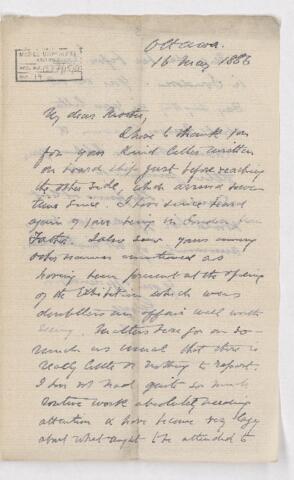 Ottawa.
16 May 1886
My dear
I have to thank you
for your kind letter written
on board ship just before reaching
the other side, which arrived some
time since. I have since heard
again of your being in London from
Father. I also saw yours among
other names mentioned as
having been present at the opening
of the Exhibition which was
doubtless an affair well worth
seeing. Matters here go on so
much as usual that there is
really little or nothing to report.
I do not had quite so much
routine work absolutely needing
attention & have become very lazy
about what ought to be attended to